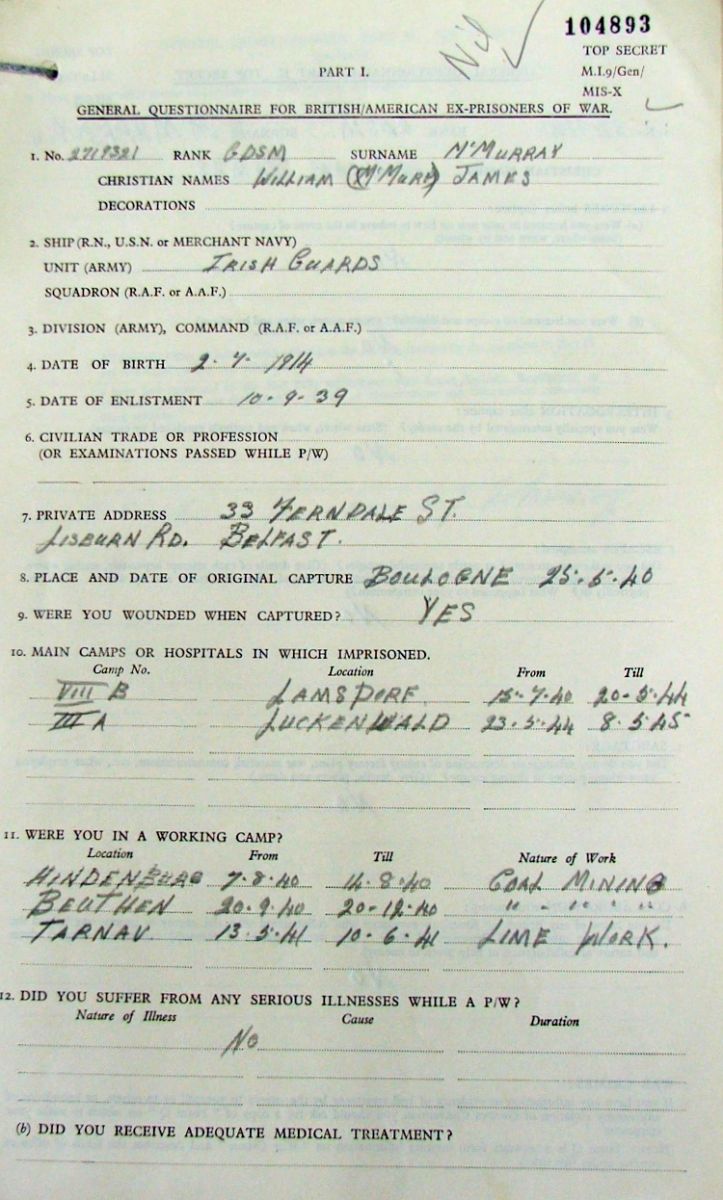 Nil
104893
TOP SECRET
M.I.9/Gen/
MIS-X
PART I.
GENERAL QUESTIONNAIRE FOR BRITISH/AMERICAN EX-PRISONERS OF WAR.
1. No. 2719321 RANK GDSM SURNAME McMURRAY
CHRISTIAN NAMES WILLIAM JAMES
DECORATIONS
2. SHIP (R.N., U.S.N. or MERCHANT NAVY)
UNIT (ARMY) IRISH GUARDS
SQUADRON (R.A.F. or A.A.F.)
3. DIVISION (ARMY), COMMAND (R.A.F. or A.A.F.)
4. DATE OF BIRTH 2. 7. 1914
5. DATE OF ENLISTMENT 10-9-39
6. CIVILIAN TRADE OR PROFESSION
(OR EXAMINATIONS PASSED WHILE P/W)
7. PRIVATE ADDRESS 33 FERNDALE ST.
LISBURN RD. BELFAST.
8. PLACE AND DATE OF ORIGINAL CAPTURE BOULOGNE 25.5.40
9. WERE YOU WOUNDED WHEN CAPTURED? YES
10. MAIN CAMPS OR HOSPITALS IN WHICH IMPRISONED.
Camp No. Location From Till
VIII B LAMSDORF 15-7-40 20-5-44
III A LUCKENWALD 23-5-44 8.5.45
11. WERE YOU IN A WORKING CAMP?
Location From Till Nature of Work
HINDENBURG 7-8-40 14-8-40 COAL MINING
BEUTHEN 20-9-40 20-12-40 " - " " "
TARNAV 13-5-41 10-6-41 LIME WORK.
12. DID YOU SUFFER FROM ANY SERIOUS ILLNESSES WHILE A P/W?
Nature of Illness Cause Duration
NO
(b) DID YOU RECEIVE ADEQUATE MEDICAL TREATMENT?